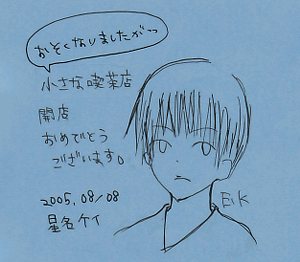 おそくなりましたがっ
小さな喫茶店
開店
おめでとう
ございます。
2005.08/08
星名ケイ
EiK